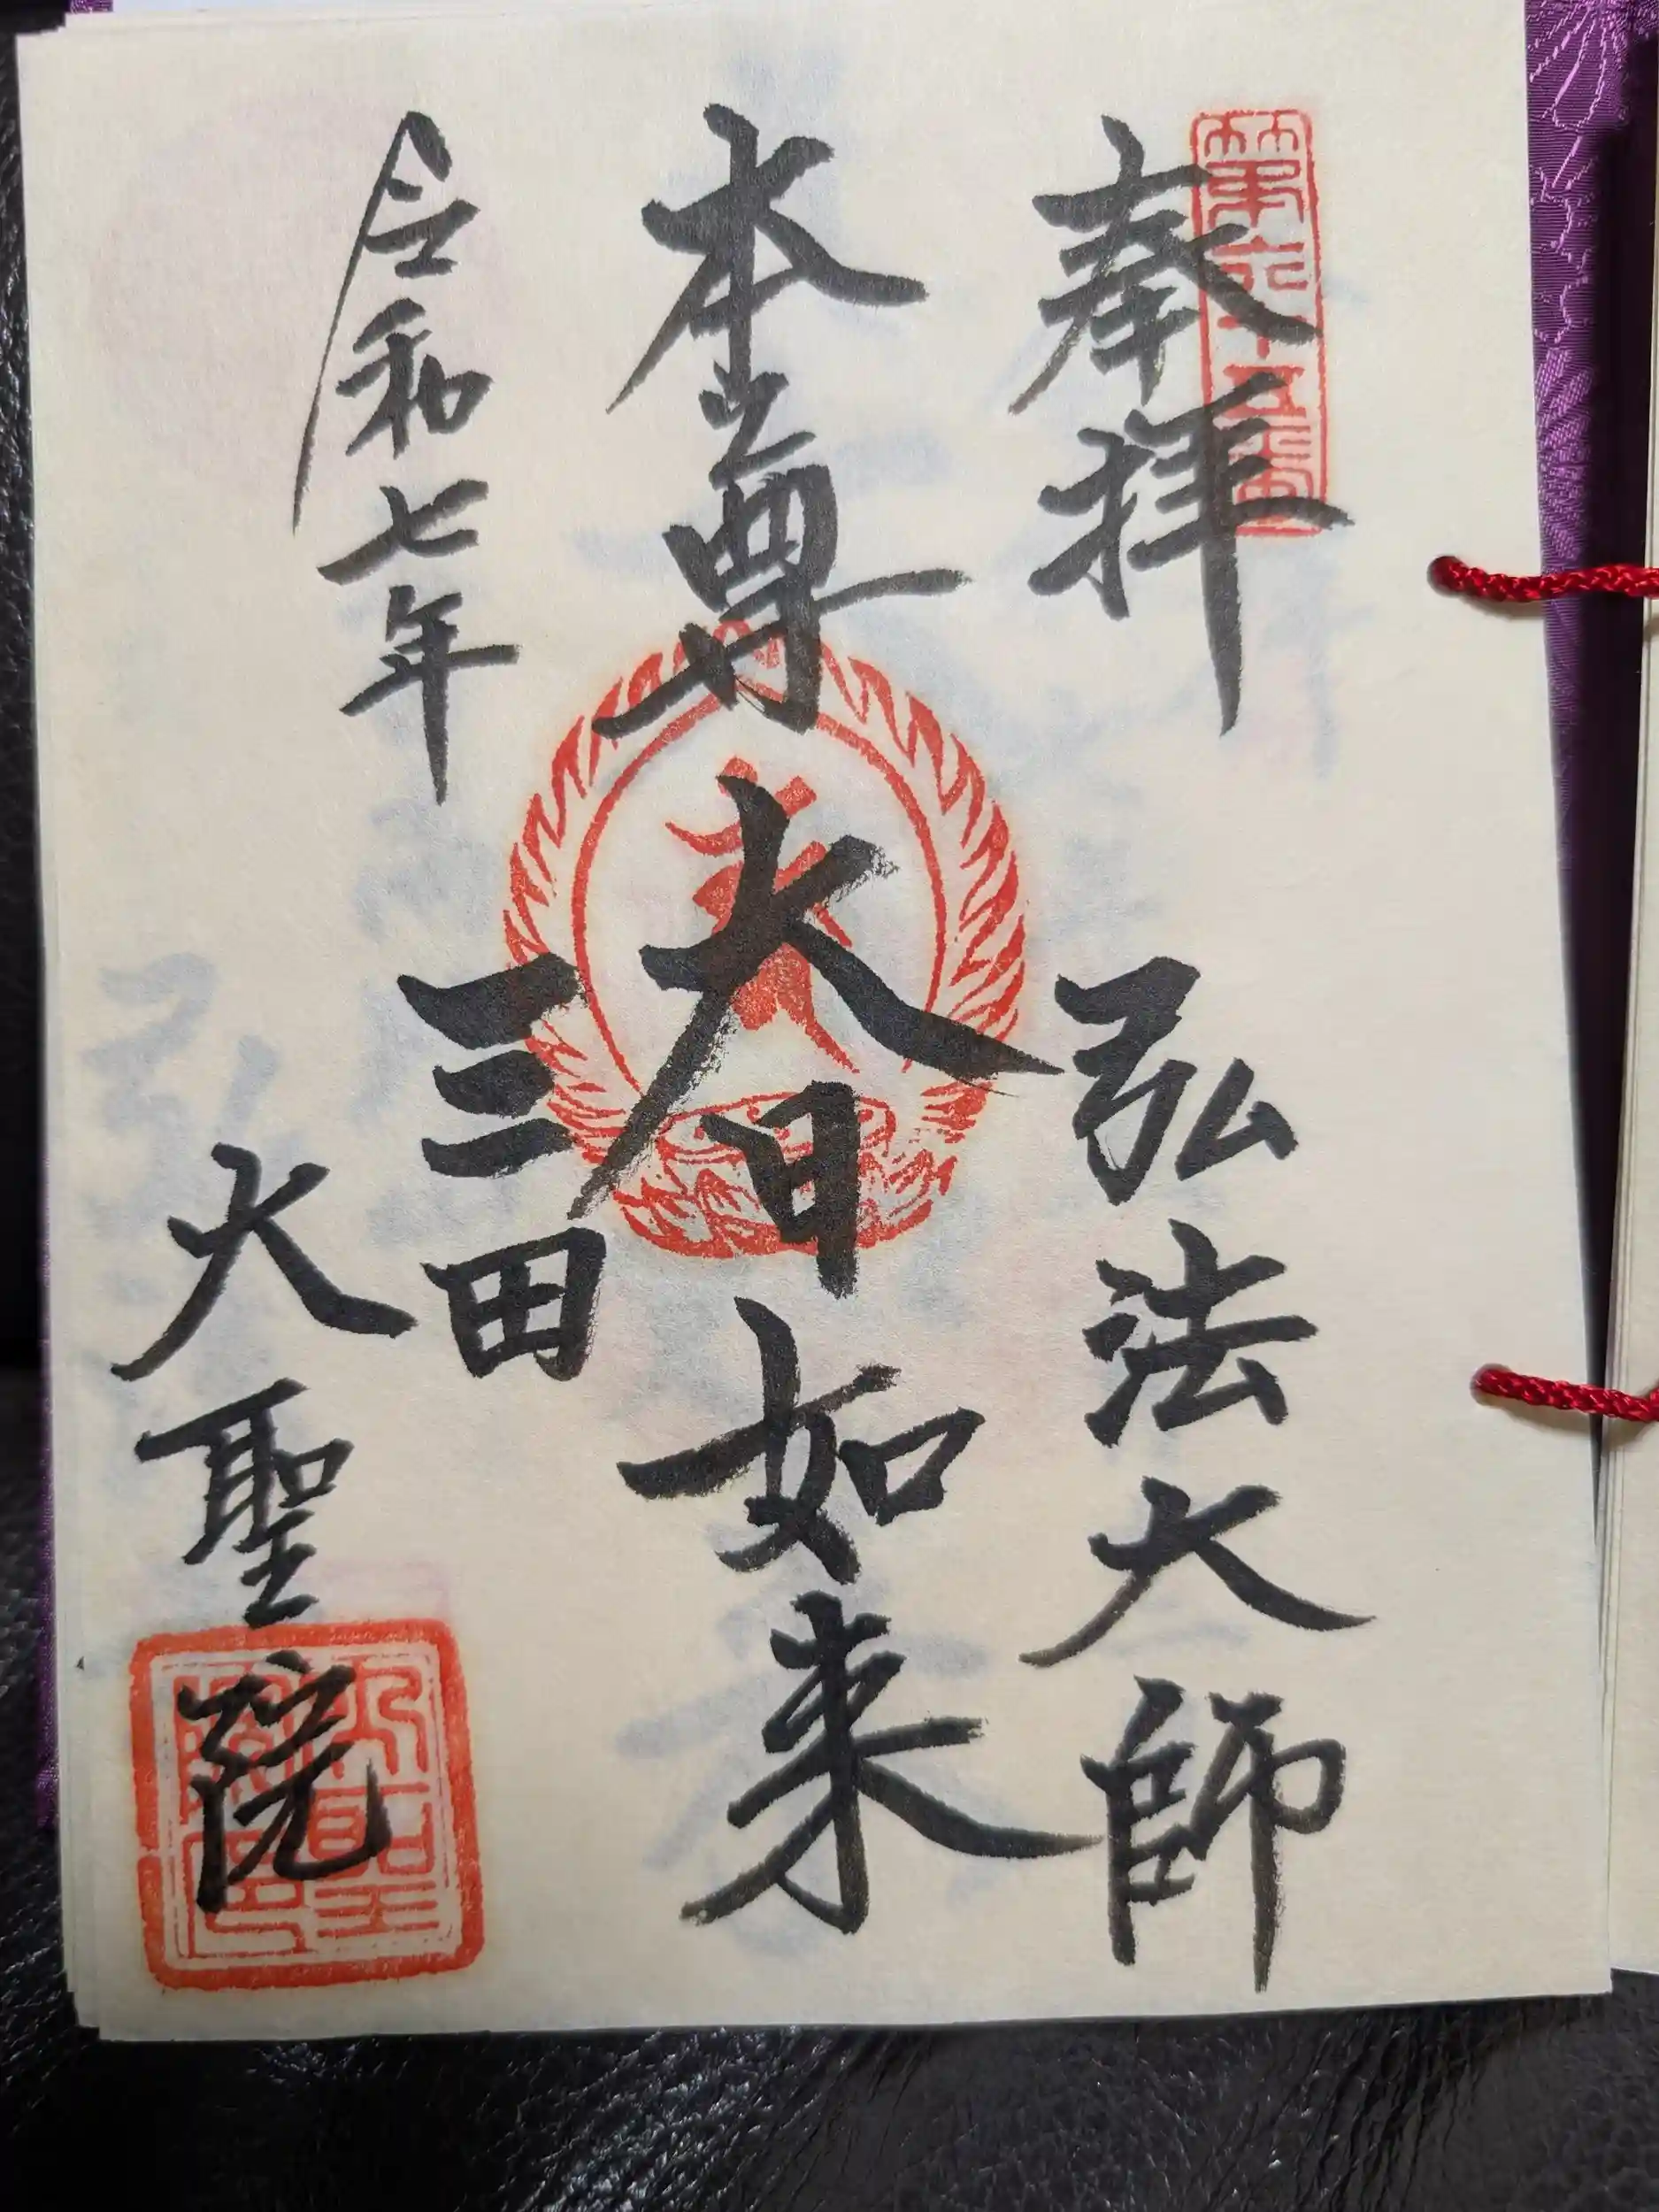 第六十五番
奉拝
弘法大師
本尊
大日如来
三田
令和七年
大聖院